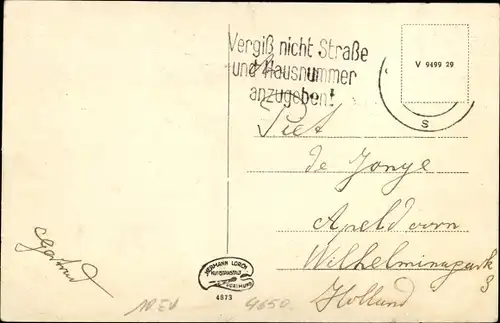 Vergiß nicht Straße
und Hausnummer
anzugeben!
V 9499 29
S
Piet
de Jonge
Apeldoorn
Wilhelminapark
3
Holland
Gertrud
HERMANN LORCH
KUNSTANSTALT
DORTMUND
4873